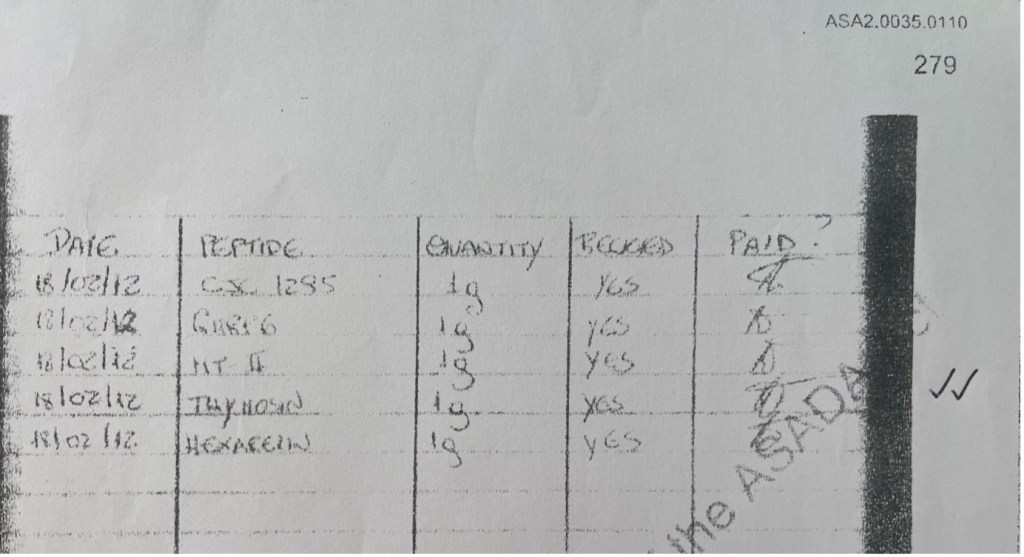 ASA2.0035.0110
279
DATE PEPTIDE QUANTITY PAID?
18/02/12 1295 1g YES
18/02/12 1g YES
18/02/12 MT II 1g YES
18/02/12 THYMOSIN 1g YES
18/02/12 HEXARELIN 1g YES
the ASADA